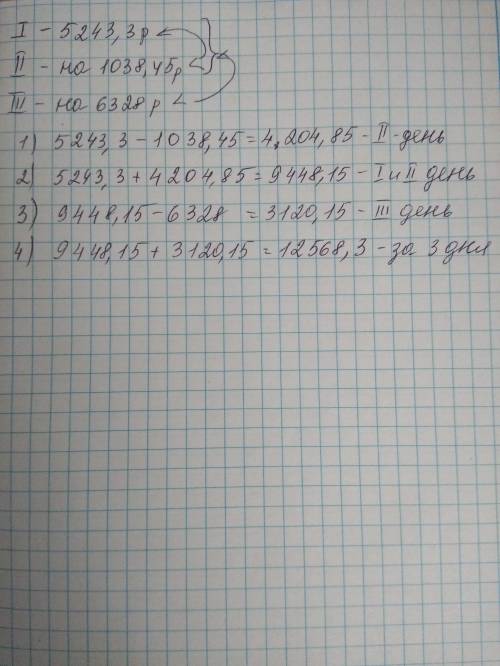 I - 5243,3р
II - на 1038,45р <
III - на 6328 р <
1) 5243,3 - 1038,45 = 4.204,85 - II - день
2) 5243,3 + 4204,85 = 9448,15 - I и II день
3) 9448,15 - 6328 = 3120,15 - III день
4) 9448,15 + 3120,15 = 12568,3 - за 3 дня